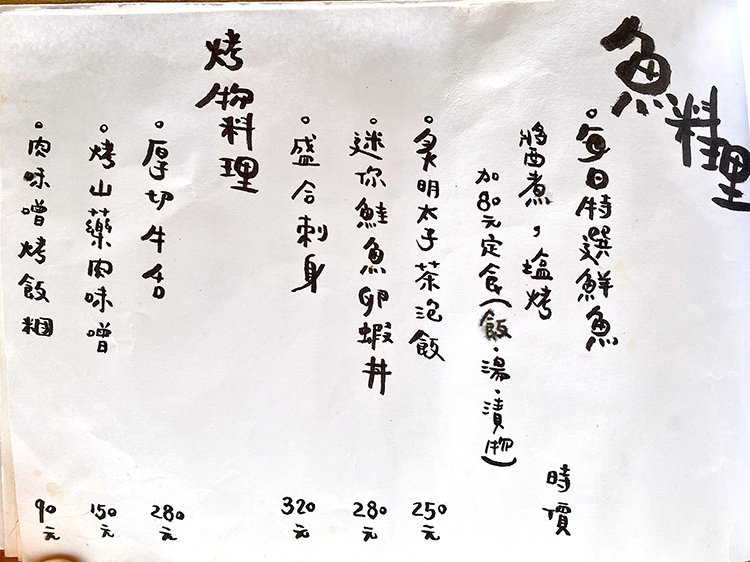 魚料理
。每日特選鮮魚
醬煮，塩烤
時價
加80元定食(飯.湯.漬物)
。炙明太子茶泡飯 250元
。迷你鮭魚卵蝦丼 280元
。盛合刺身 320元
烤物料理
。厚切牛舌 280元
。烤山藥肉味噌 150元
。肉味噌烤飯糰 90元